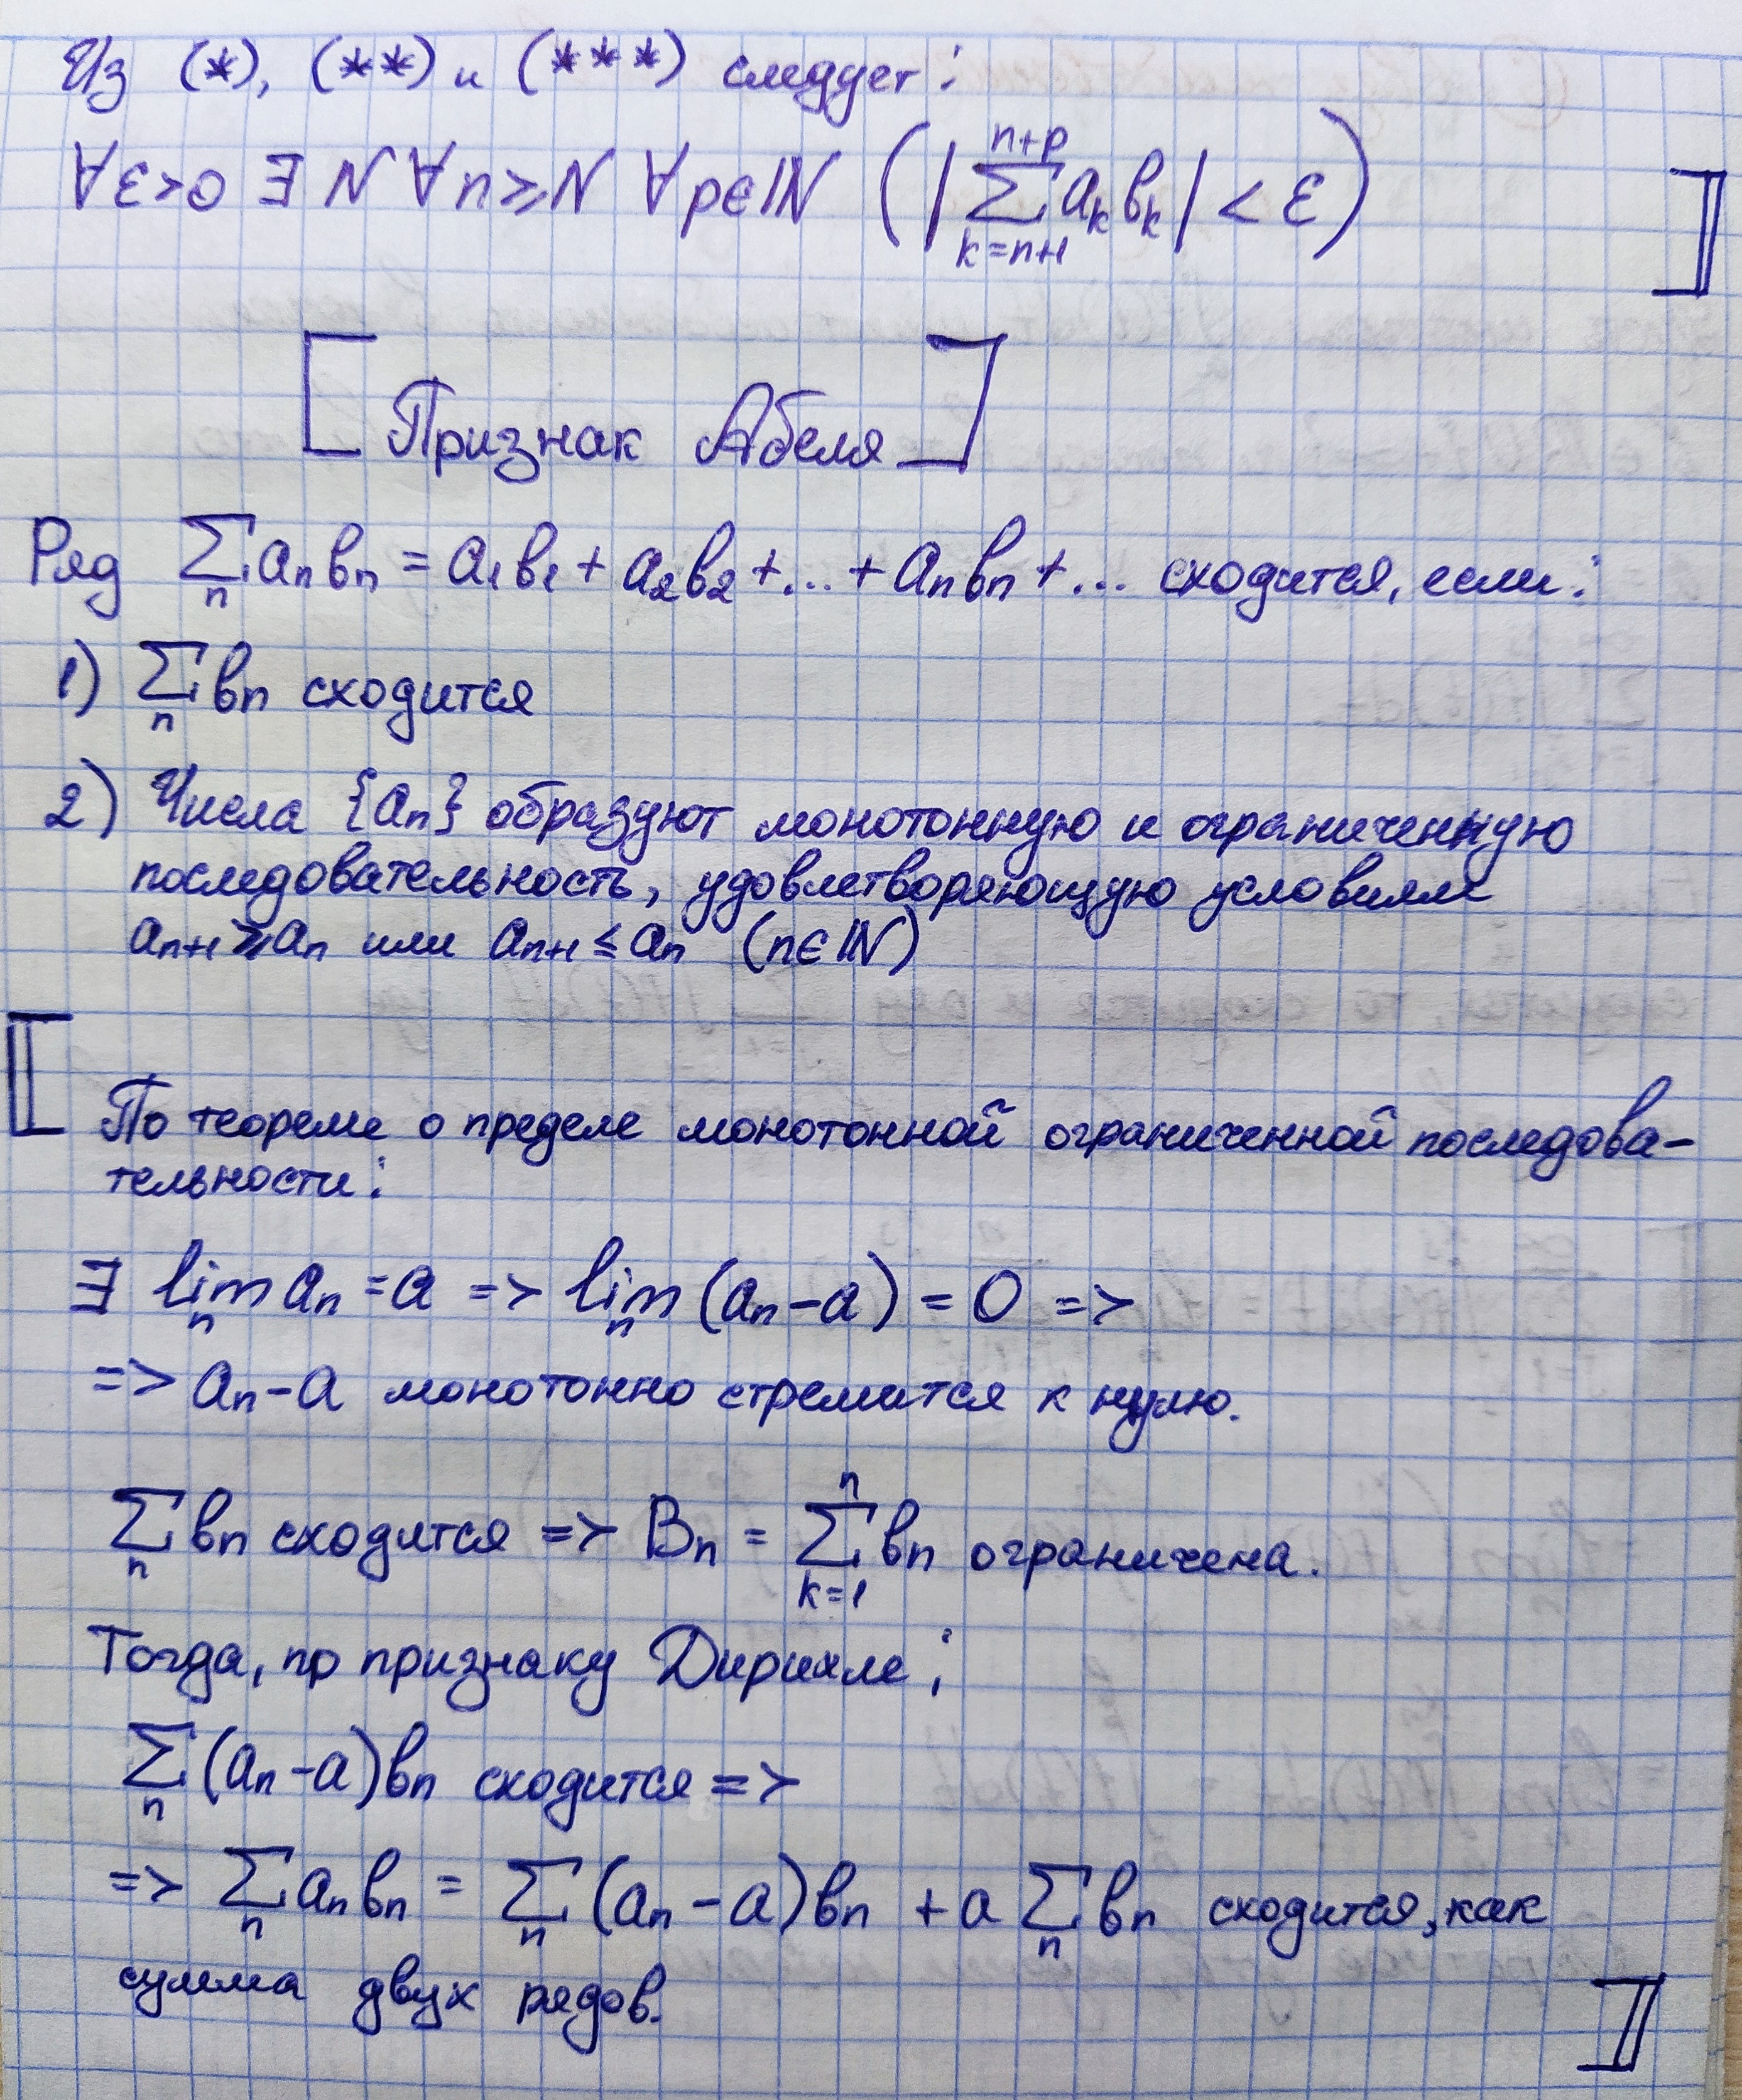 Из (*), (**) и (***) следует:
∀ε>0 ∃ N ∀n⩾N ∀p∈ℕ (|∑_{k=n+1}^{n+p} a_k b_k| < ε)
Признак Абеля
Ряд ∑_n a_n b_n = a_1 b_1 + a_2 b_2 + ... + a_n b_n + ... сходится, если:
1) ∑_n b_n сходится
2) Числа {a_n} образуют монотонную и ограниченную
последовательность, удовлетворяющую условиям
a_{n+1} ⩾ a_n или a_{n+1} ≤ a_n (n∈ℕ)
По теореме о пределе монотонной ограниченной последова-
тельности:
∃ lim_n a_n = a => lim_n (a_n - a) = 0 =>
=> a_n - a монотонно стремится к нулю.
∑_n b_n сходится => B_n = ∑_{k=1}^{n} b_n ограничена.
Тогда, по признаку Дирихле:
∑_n (a_n - a) b_n сходится =>
=> ∑_n a_n b_n = ∑_n (a_n - a) b_n + a ∑_n b_n сходится, как
сумма двух рядов.